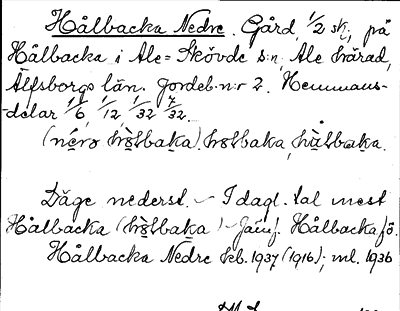 Hålbacka Nedre. Gård, 1/2 sk; på
Hålbacka i Ale-Skövde s:n, Ale härad,
Älfsborgs län. Jordeb.n:r 2. Hemmans-
-delar 1/6, 1/12, 1/32 7/32.
(nérə hòlbaka). holbaka, hùlbaka.
Däge nederst. – I dagl. tal mest
Hålbacka (hòlbaka) – Jämf. Hålbacka fö.
Hålbacka Nedre keb. 1937 (1916); ml. 1936